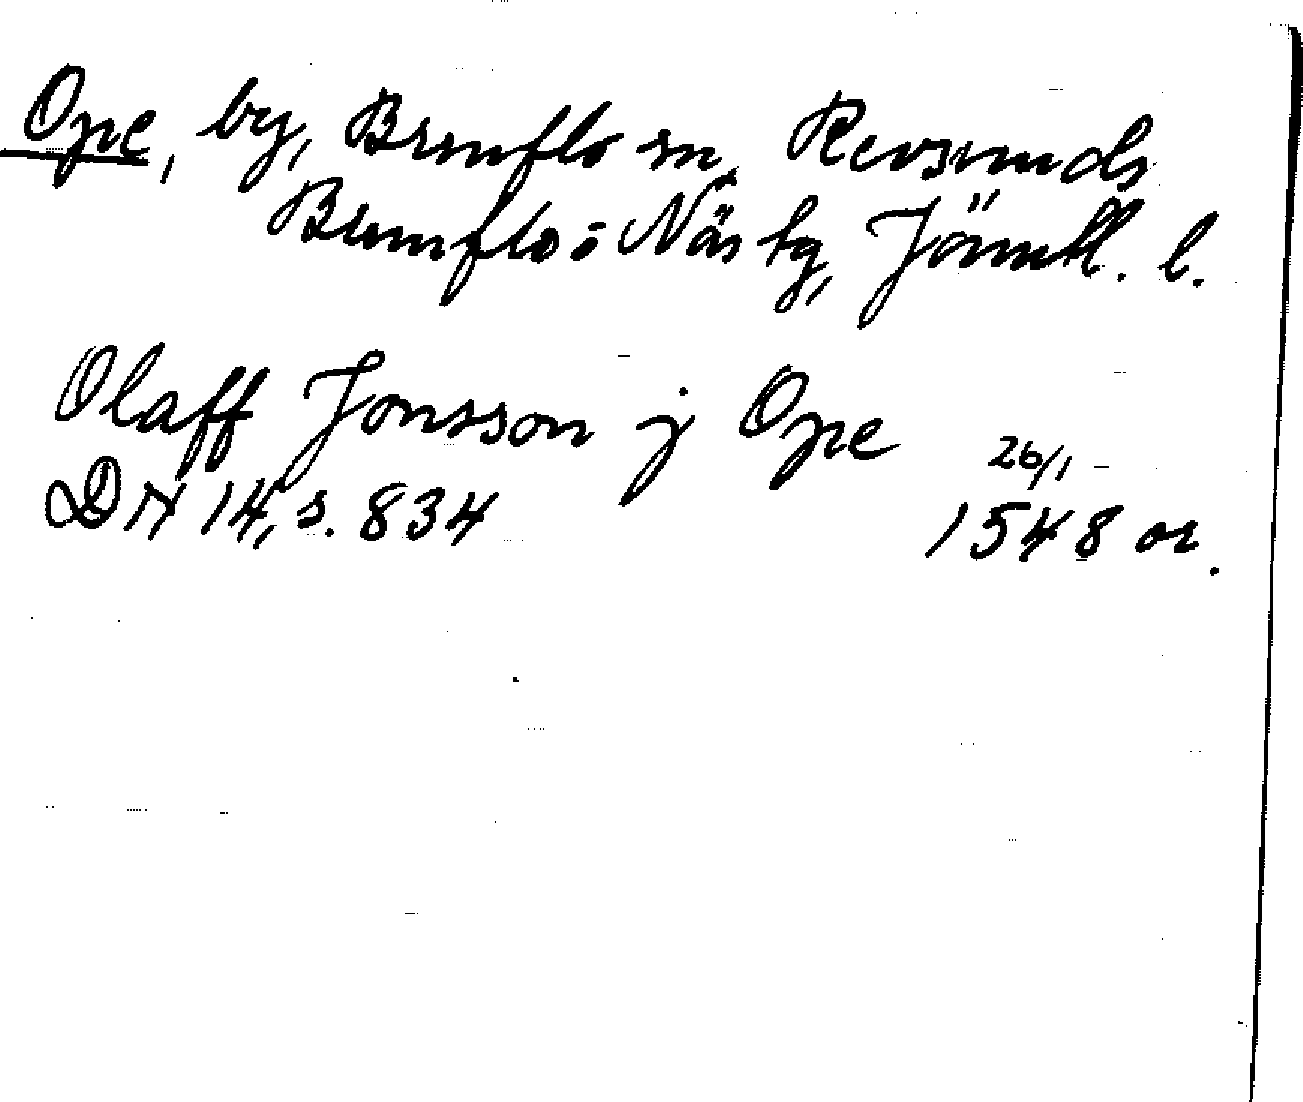 Ope, by, Brunflo sn, Revsunds
Brunflo o Näs tg, Jämtl. l.
Olaff Jonsson j Ope
26/1
DN 14, s. 834 1548 or.